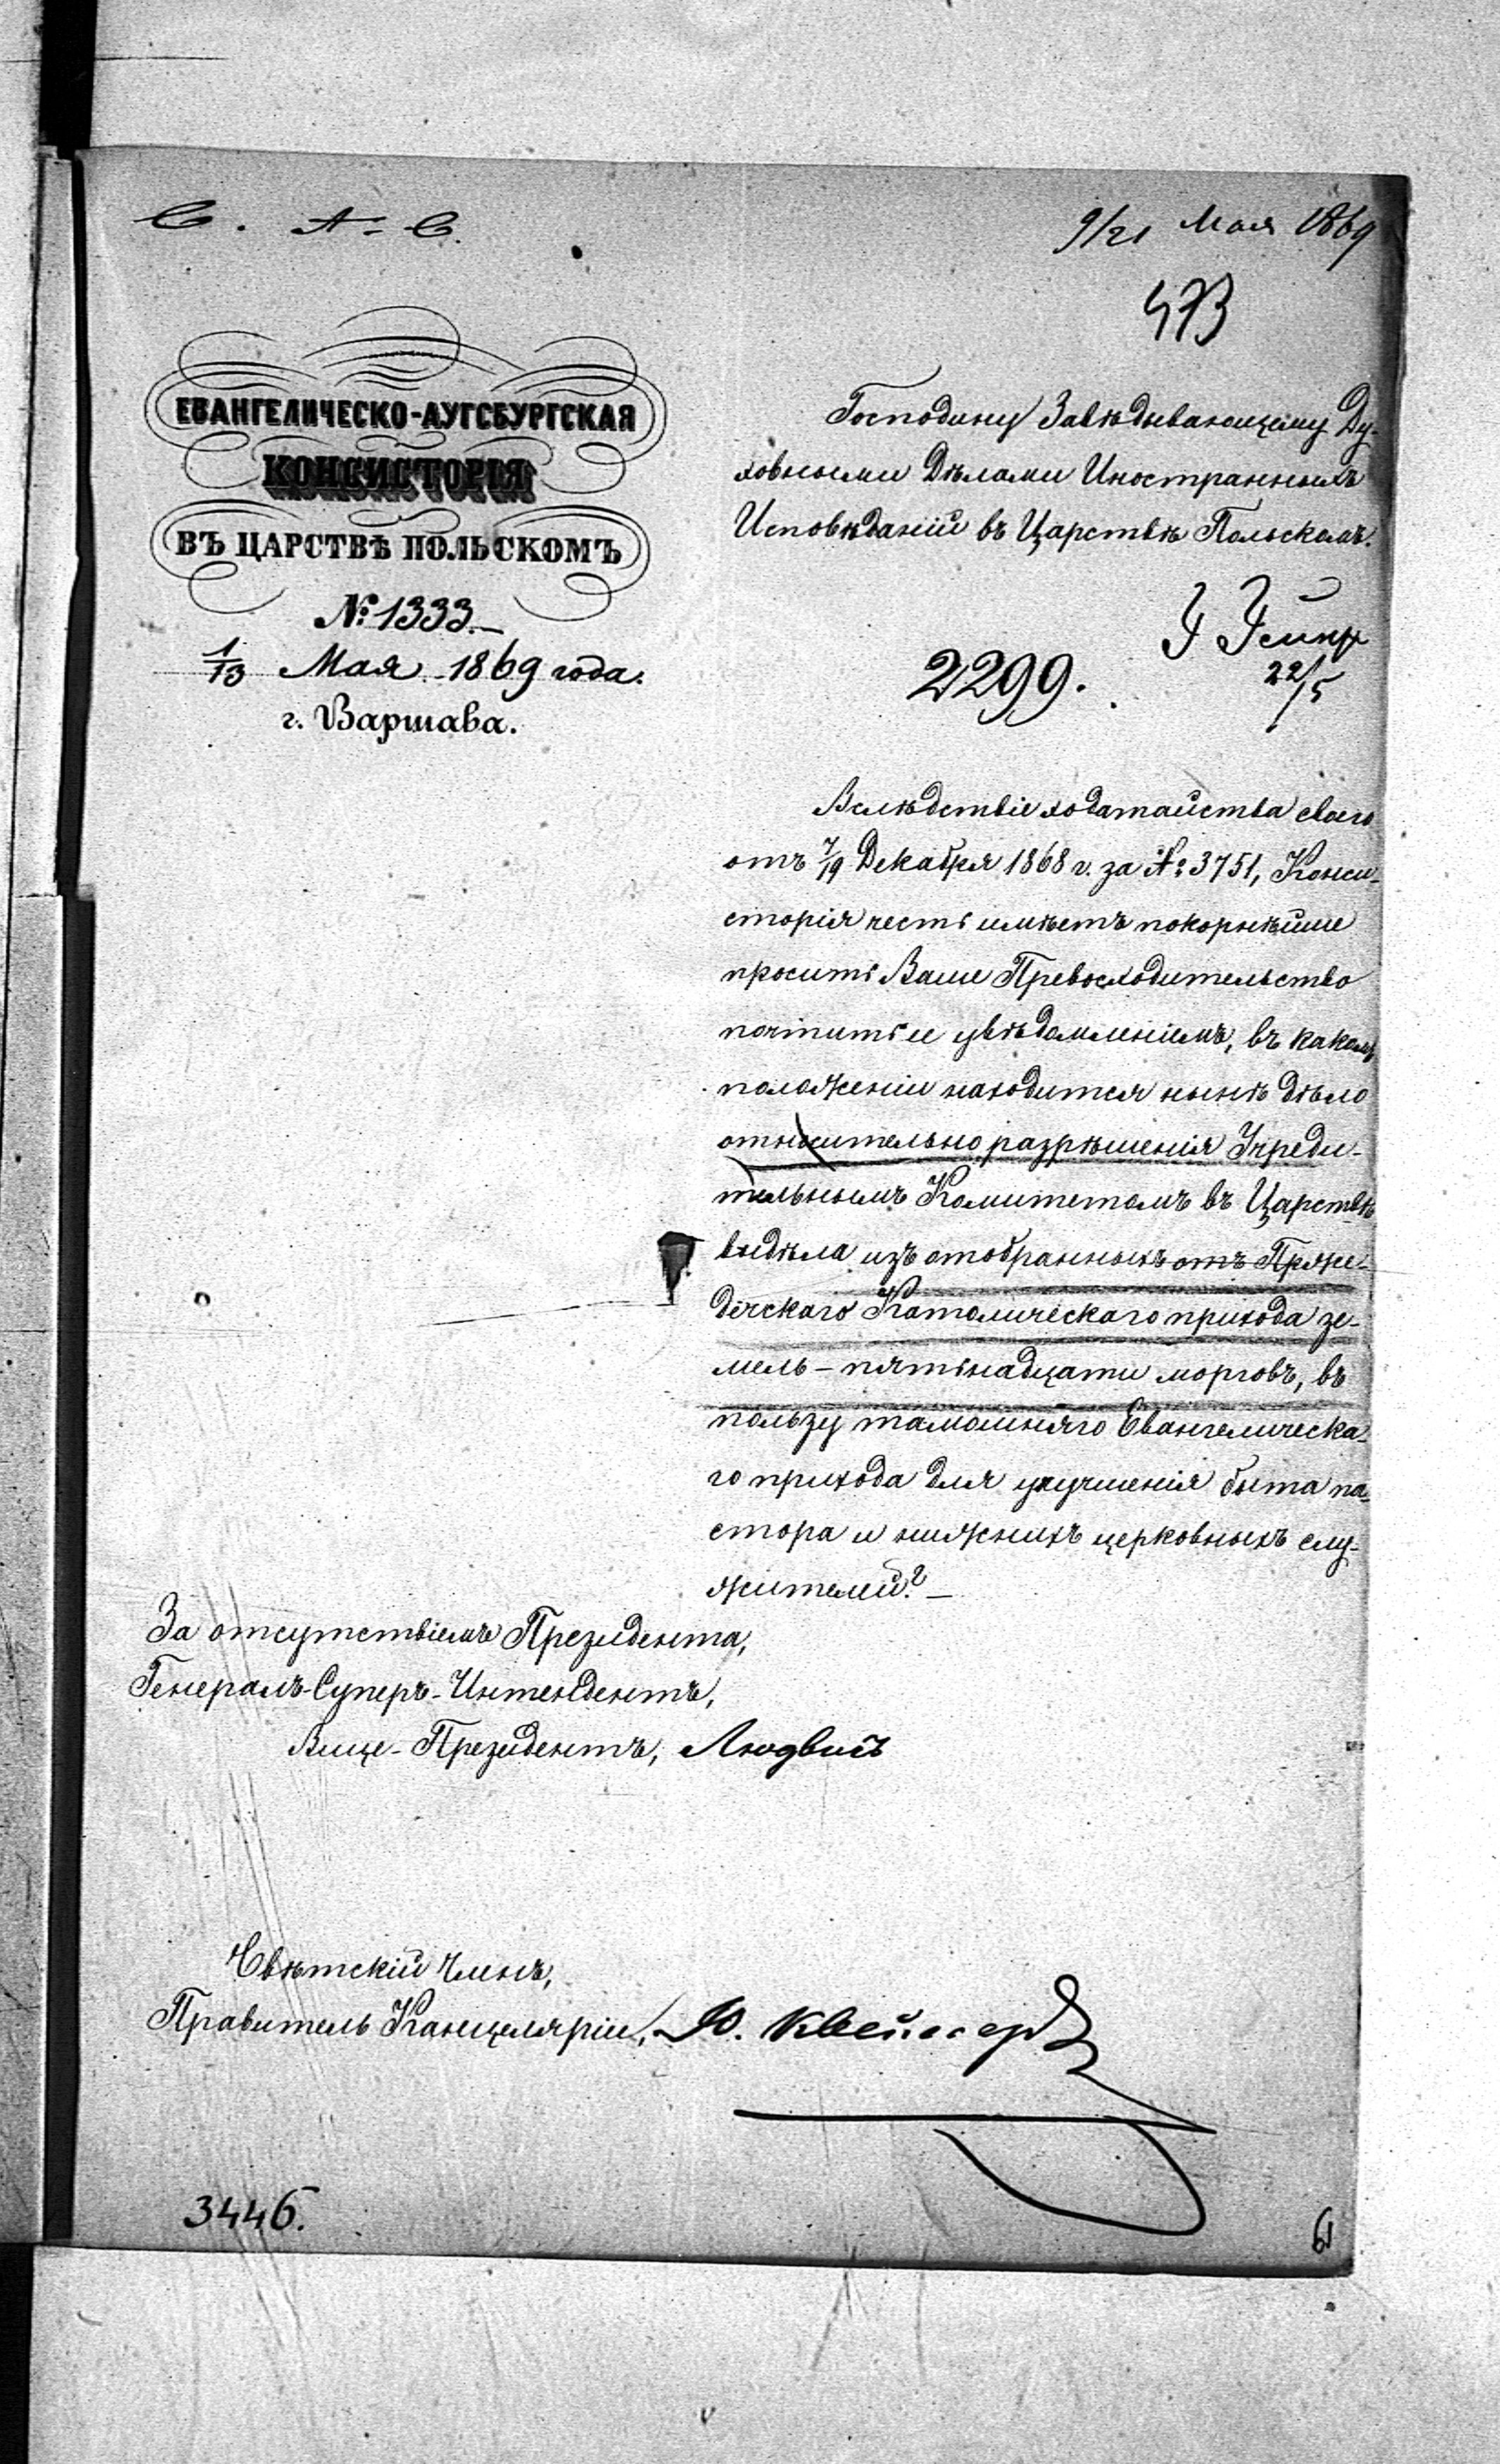 С. А-С.
9/21 Мая 1869
473
ЕВАНГЕЛИЧЕСКО-АУГСБУРГСКАЯ
КОНСИСТОРІЯ
ВЪ ЦАРСТВѢ ПОЛЬСКОМЪ
№ 1333.-
1/13 Мая 1869 года.
г. Варшава.
Господину Завѣдывающему Ду-
ховными Дѣлами Иностранныхъ
Исповѣданій въ Царствѣ Польскомъ.
22/5
2299.
Вслѣдствіе ходатайства своего
отъ 7/19 Декабря 1868 г. за № 3751, Конси-
сторія честь имѣетъ покорнѣйше
просить Ваше Превосходительство
почтить ее увѣдомленіемъ, въ какомъ
положеніи находится нынѣ дѣло
относительно разрѣшенія Учреди-
тельнымъ Комитетомъ въ Царствѣ
выдѣла изъ отобранныхъ отъ Пряже-
дечскаго Католическаго прихода зе-
мель – пятьнадцати морговъ, въ
пользу тамошняго Евангелическа-
го прихода для улучшенія быта па-
стора и нижнихъ церковныхъ слу-
жителей? –
За отсутствіемъ Президента,
Генералъ-Суперъ-Интендентъ,
Вице-Президентъ, Людвигъ
Свѣтскій Членъ,
Правитель Канцеляріи, Ю.
3446.
61